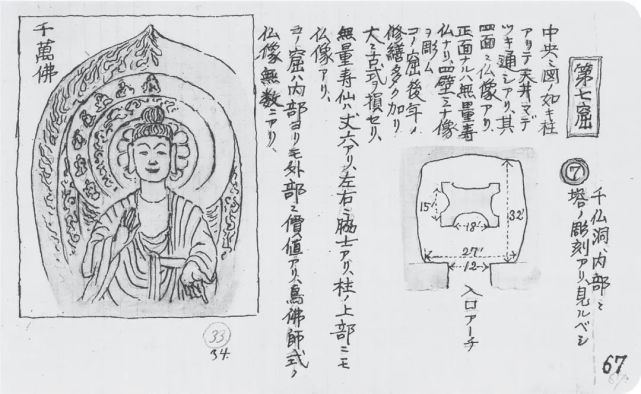 第七窟
⑦
千仏洞、内部ニ
塔ノ彫刻アリ、見ルベシ
中央ニ図ノ如キ柱
アリテ天井マデ
ツキ通シアリ、其
四面ニ仏像アリ、
正面ナルハ無量寿
仏ナリ、四壁ミナ像
ヲ彫ム
コノ窟後年ノ
修繕多ク加リ
大ニ古式ヲ損セリ、
無量寿仙ハ丈六アリ、左右ニ脇士アリ、柱ノ上部ニモ
仏像アリ、
コノ窟ハ内部ヨリモ外部ニ價値アリ、鳥佛師式ノ
仏像無数ニアリ、
15'
18'
32'
27'
12
入口アーチ
千萬佛
33
34.
67